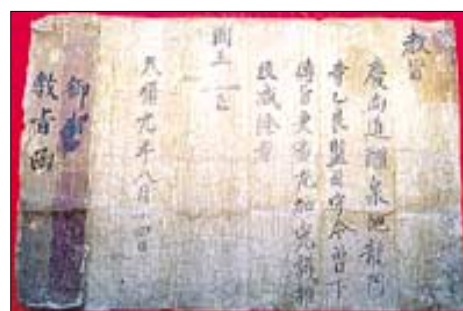 教旨
慶尚道醴泉地龍門
寺乙良監司守令下
傳旨更審尤加完護雜
役減除者
國王
天順元年八月十四日
御
教旨